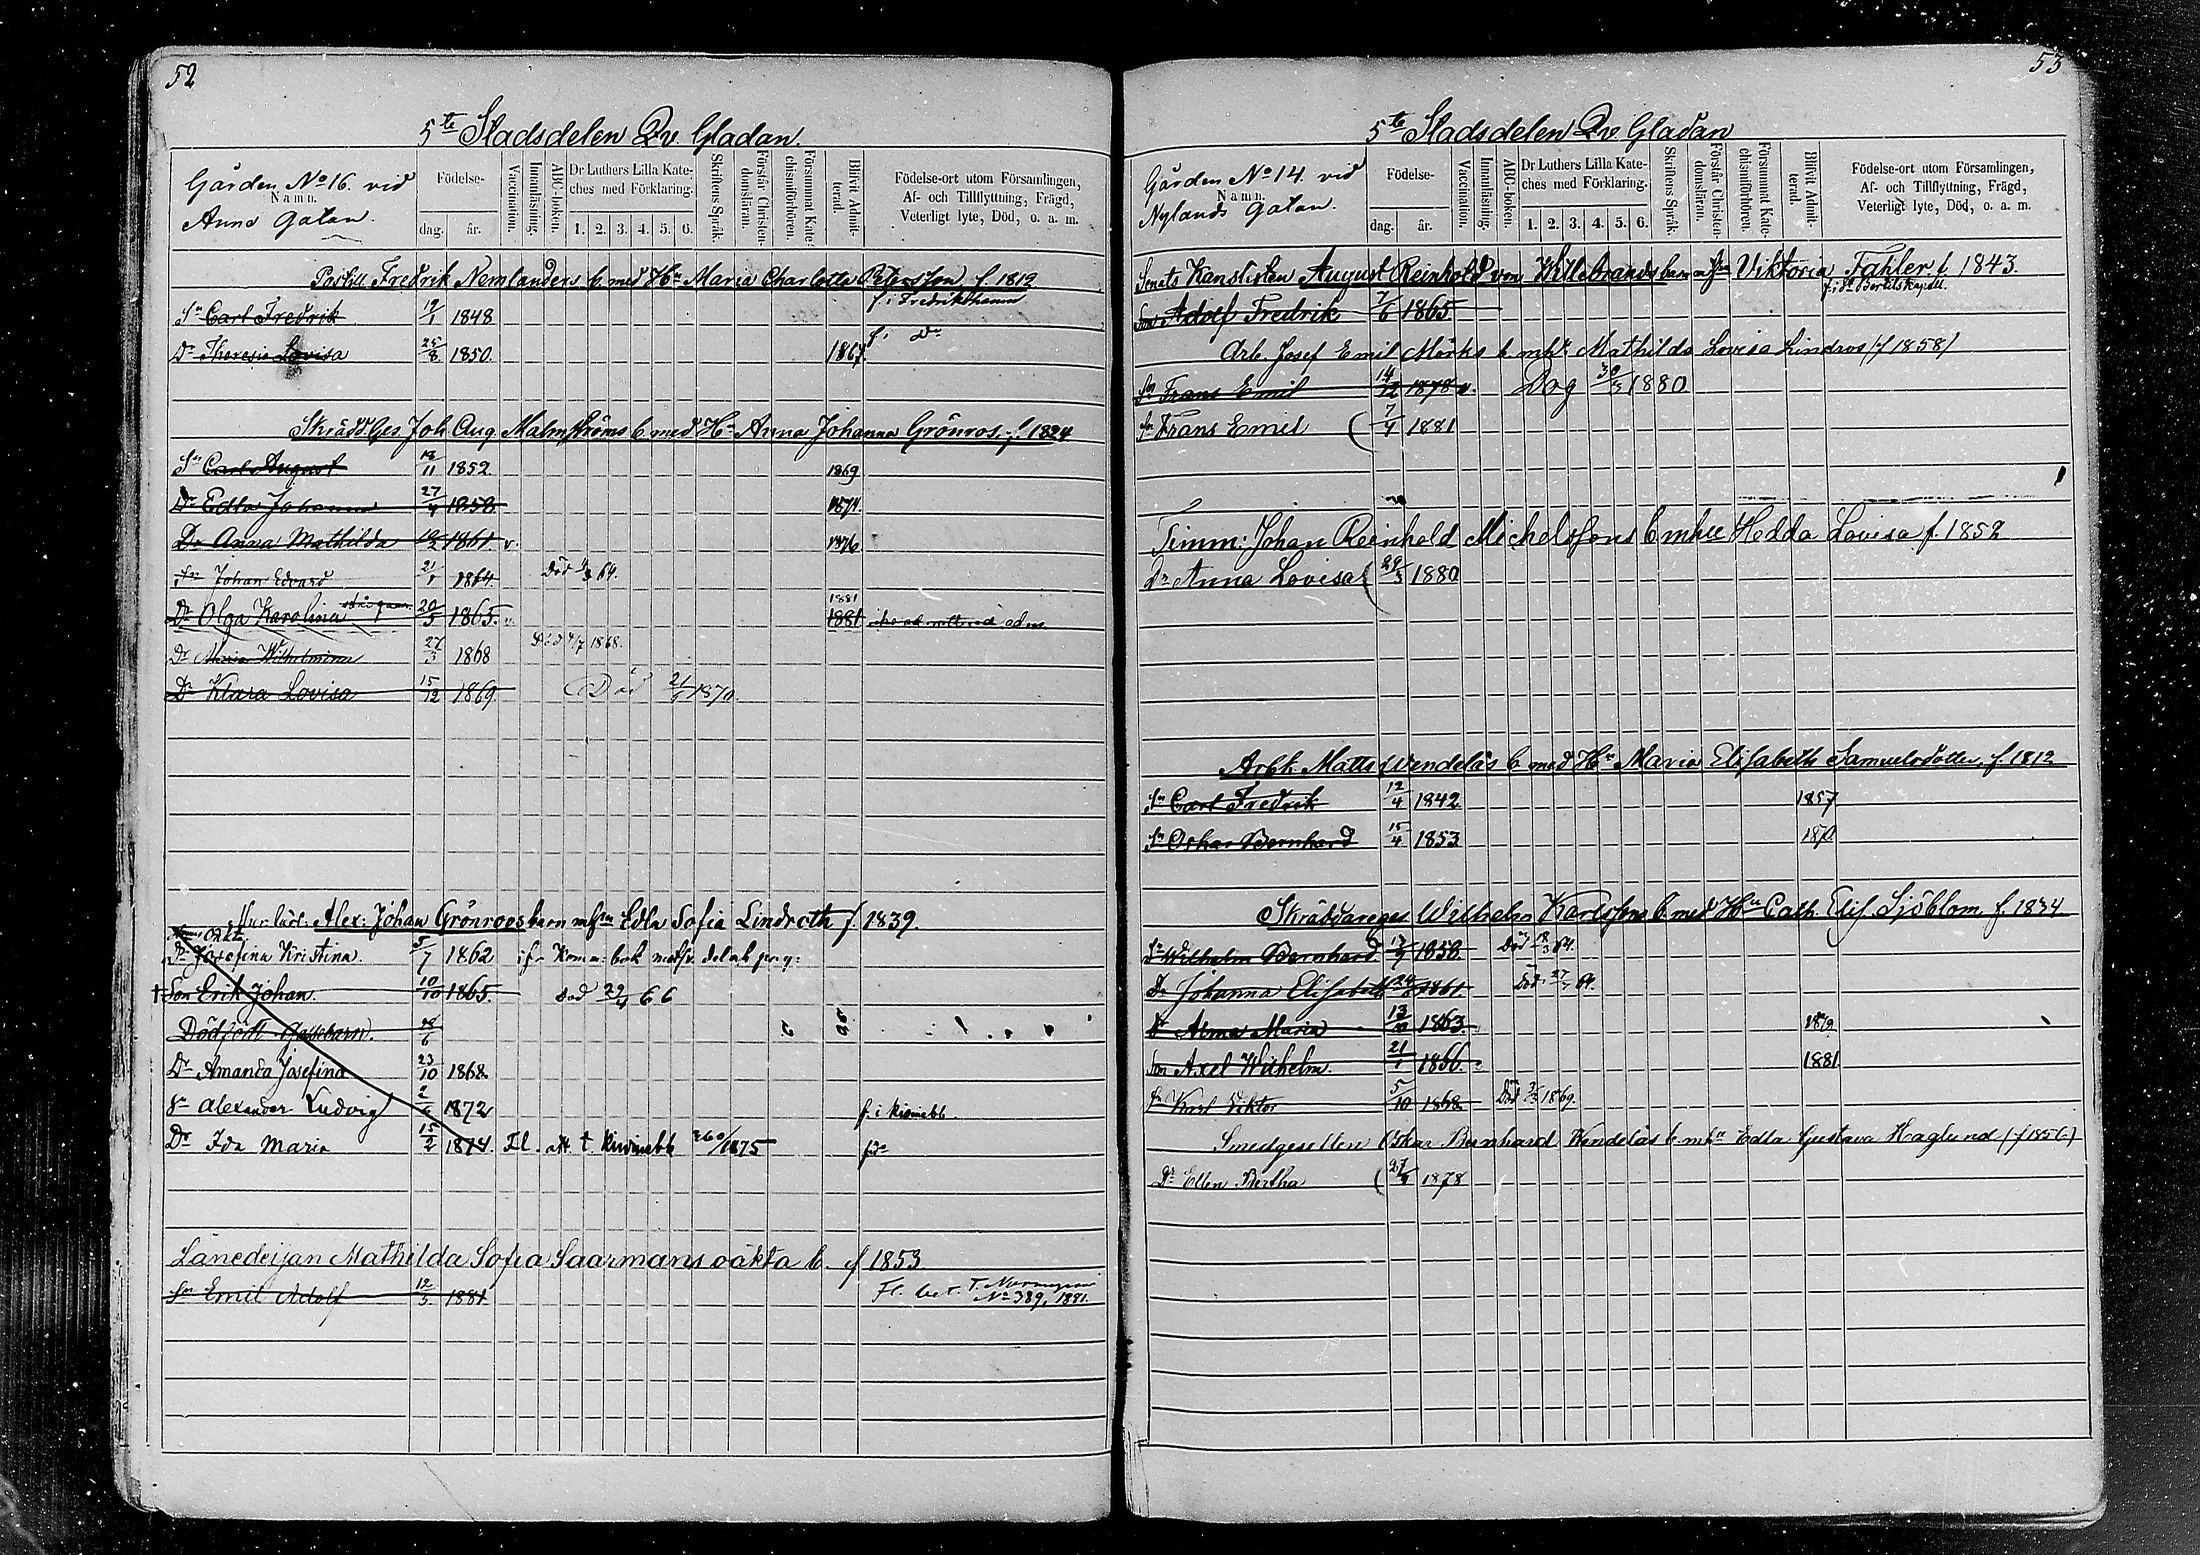 52
5te Stadsdelen Qv. Gladan.
Gården No 16. vid
Namn.
Anna Gatan.
Födelse-
dag. år.
Vaccination.
Innanläsning.
ABC-boken.
Dr Luthers Lilla Kate-
ches med Förklaring.
1. 2. 3. 4. 5. 6.
Skriftens Språk.
Förstår Christen-
domsläran.
Försummat Kate-
chismiförhören.
Blivit Admit-
terad.
Födelse-ort utom Församlingen,
Af- och Tillflyttning, Frägd,
Veterligt lyte, Död, o. a. m.
Fredrik Nemlanders b. med Hu Maria Charlotta Petersson f. 1812
Sn Carl Fredrik 1848 f. i Fredrikshamn
Dr Theresia Lovisa 25/8 1850. 1867 f. i Do
Skrädd Ges Joh Aug Malmströms b med Hu Anna Johanna Grönroos, f. 1824
Sn Carl August 18/11 1852. 1869
Dr Edla Johanna 27/4 1858 1874
Dr Anna Mathilda 1861. v. 1876
Sn Johan Edvard 21/1 1864 Död 64.
Dr Olga Karolina 20/5 1865. v 1881 1881
Dr Maria Wilhelmina 27/3 1868 Död 1868.
Dr Klara Lovisa 15/12 1869 Död 1870.
Alex: Johan Grönroos barn m hu Edla Sofia Lindroth f. 1839.
Dr Josefina Kristina. 5/7 1862
† Son Erik Johan. 10/10 1865. död 29/4 66
Dödfödt gossebarn. 18/6
Dr Amanda Josefina 23/10 1868
Sn Alexander Ludvig 1872 f. i Kisinebb.
Dr Ida Maria 15/2 1874. Fl. att. t. Kisinebb 1875
Mathilda Sofia Saarmans oäkta b. f 1853
Sn Emil Adolf 12/5 1881 Fl. bet. T.
No 389, 1881.
53
5te Stadsdelen Qv. Gladan
Gården No 14. vid
Namn.
Nylands Gatan.
Födelse-
dag. år.
Vaccination.
Innanläsning.
ABC-boken.
Dr Luthers Lilla Kate-
ches med Förklaring.
1. 2. 3. 4. 5. 6.
Skriftens Språk.
Förstår Christen-
domsläran.
Försummat Kate-
chismiförhören.
Blivit Admit-
terad.
Födelse-ort utom Församlingen,
Af- och Tillflyttning, Frägd,
Veterligt lyte, Död, o. a. m.
Senats Kanslisten August Reinhold von Willebrands barn m hu Viktoria Tahler f. 1843.
Son Adolf Fredrik 7/6 1865
Arb. Josef Emil Mörks b. m hu Mathilda Lovisa Lindros (f 1858)
Sn Frans Emil 14/12 1878 v. Dog 30/3 1880
Sn Frans Emil 7/4 1881
Timm: Johan Reinhold Michelssons b m hu Hedda Lovisa f. 1852
Dr Anna Lovisa 29/3 1880
Arbk. Matts Wendeläs b. med Hu Maria Elisabeth Samuelsdotter, f. 1812
Sn Carl Fredrik 12/4 1842 1857
Sn Oskar Bernhard 15/4 1853 1870
Skräddareges Wilhelm Karlssons b. med Hu Cath. Elis. Sjöblom f. 1834
Sn Wilhelm Bernhard 1858. Död 64.
Dr Johanna Elisabeth 1861. Död 64.
Dr Alma Maria 13/10 1863. 1879
Son Axel Wilhelm. 21/1 1866. 1881
Sn Karl Viktor 5/10 1868 Död 1869.
Smedgesellen Oskar Bernhard Wendeläs b. m hu Edla Gustava Haglund (f 1856)
Dr Ellen Bertha 1878